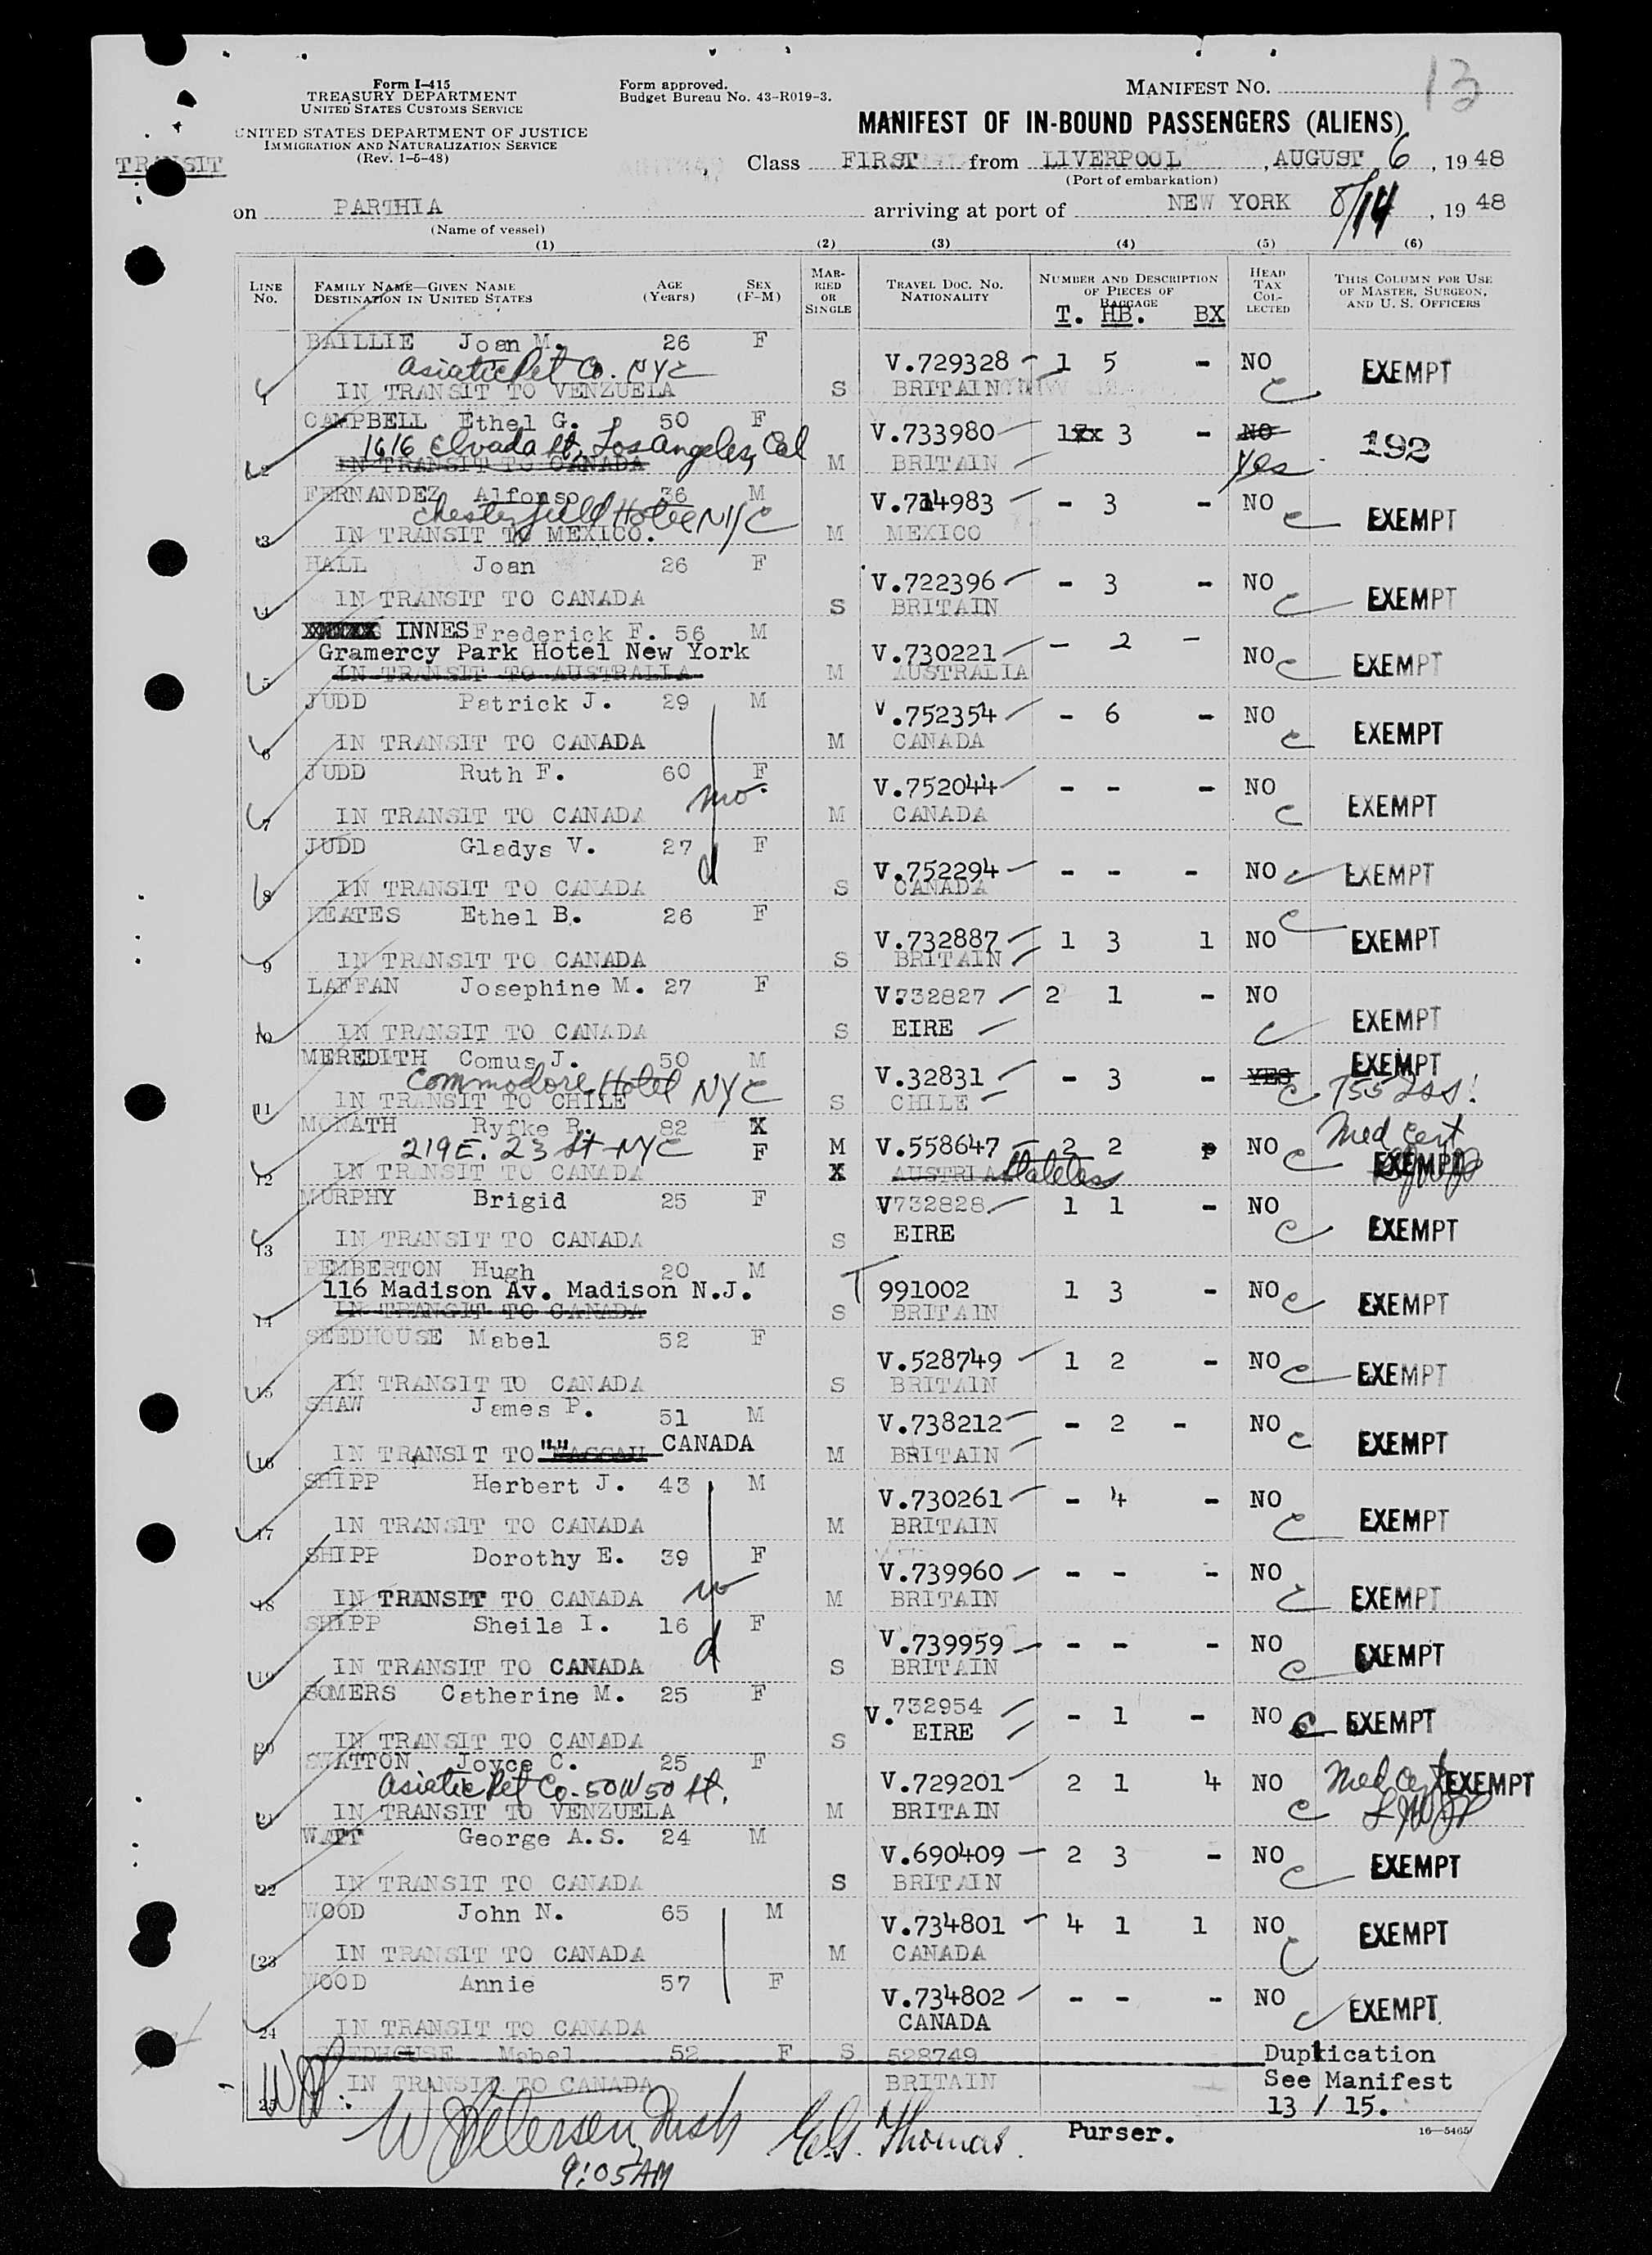 13
Form I-415
TREASURY DEPARTMENT
UNITED STATES CUSTOMS SERVICE
UNITED STATES DEPARTMENT OF JUSTICE
IMMIGRATION AND NATURALIZATION SERVICE
(Rev. 1-5-48)
Form approved.
Budget Bureau No. 43-R019-3.
MANIFEST NO.
MANIFEST OF IN-BOUND PASSENGERS (ALIENS)
TRANSIT
Class FIRST from LIVERPOOL, AUGUST 6, 1948
(Port of embarkation)
on PARTHIA arriving at port of NEW YORK 8/14, 1948
(Name of vessel)
(1) (2) (3) (4) (5) (6)
LINE No. FAMILY NAME—GIVEN NAME DESTINATION IN UNITED STATES AGE (Years) SEX (F-M) MARRIED OR SINGLE TRAVEL DOC. NO. NATIONALITY NUMBER AND DESCRIPTION OF PIECES OF BAGGAGE HEAD TAX COLLECTED THIS COLUMN FOR USE OF MASTER, SURGEON, AND U. S. OFFICERS
T. HB. BX
BAILLIE Joan M. 26 F V.729328 1 5 - NO EXEMPT
Asiatic Pet Co. NYC
1 IN TRANSIT TO VENZUELA S BRITAIN c
CAMPBELL Ethel G. 50 F V.733980 1 3 - NO 192
1616 Los Angeles, Cal
2 IN TRANSIT TO CANADA M BRITAIN Yes
FERNANDEZ Alfonso 36 M V.714983 - 3 - NO EXEMPT
Chesterfield Hotel NYC
3 IN TRANSIT TO MEXICO. M MEXICO c
HALL Joan 26 F V.722396 - 3 - NO EXEMPT
4 IN TRANSIT TO CANADA S BRITAIN c
INNES Frederick F. 56 M V.730221 - 2 - NO c EXEMPT
Gramercy Park Hotel New York
5 IN TRANSIT TO AUSTRALIA M AUSTRALIA
JUDD Patrick J. 29 M V.752354 - 6 - NO EXEMPT
6 IN TRANSIT TO CANADA M CANADA c
JUDD Ruth F. 60 F V.752044 - - - NO EXEMPT
mo.
7 IN TRANSIT TO CANADA M CANADA c
JUDD Gladys V. 27 F V.752294 - - - NO c EXEMPT
d
8 IN TRANSIT TO CANADA S CANADA
KEATES Ethel B. 26 F V.732887 1 3 1 NO c EXEMPT
9 IN TRANSIT TO CANADA S BRITAIN
LAFFAN Josephine M. 27 F V.732827 2 1 - NO EXEMPT
10 IN TRANSIT TO CANADA S EIRE c
MEREDITH Comus J. 50 M V.32831 - 3 - YES EXEMPT
Commodore Hotel NYC
11 IN TRANSIT TO CHILE S CHILE c
MONATH Ryfke R. 82 X F M V.558647 2 2 NO c Med Cert EXEMPT
219 E. 23 St NYC
12 IN TRANSIT TO CANADA X AUSTRIA Stateless
MURPHY Brigid 25 F V732828 1 1 - NO EXEMPT
13 IN TRANSIT TO CANADA S EIRE c
PEMBERTON Hugh 20 M T 991002 1 3 - NO c EXEMPT
116 Madison Av. Madison N.J.
14 IN TRANSIT TO CANADA S BRITAIN
SEEDHOUSE Mabel 52 F V.528749 1 2 - NO c EXEMPT
15 IN TRANSIT TO CANADA S BRITAIN
SHAW James P. 51 M V.738212 - 2 - NO c EXEMPT
16 IN TRANSIT TO NASSAU CANADA M BRITAIN
SHIPP Herbert J. 43 M V.730261 - 4 - NO EXEMPT
17 IN TRANSIT TO CANADA M BRITAIN c
SHIPP Dorothy E. 39 F V.739960 - - - NO EXEMPT
w
18 IN TRANSIT TO CANADA M BRITAIN c
SHIPP Sheila I. 16 F V.739959 - - - NO EXEMPT
d
19 IN TRANSIT TO CANADA S BRITAIN c
SOMERS Catherine M. 25 F V.732954 - 1 - NO c EXEMPT
20 IN TRANSIT TO CANADA S EIRE
SWATTON Joyce C. 25 F V.729201 2 1 4 NO Med Cert EXEMPT
Asiatic Pet Co - 50 W 50 St.
21 IN TRANSIT TO VENZUELA M BRITAIN c
WATT George A.S. 24 M V.690409 2 3 - NO EXEMPT
22 IN TRANSIT TO CANADA S BRITAIN c
WOOD John N. 65 M V.734801 4 1 1 NO EXEMPT
23 IN TRANSIT TO CANADA M CANADA c
WOOD Annie 57 F V.734802 - - - NO EXEMPT.
24 IN TRANSIT TO CANADA CANADA c
SEEDHOUSE Mabel 52 F S 528749 Duplication
25 IN TRANSIT TO CANADA BRITAIN See Manifest
13 / 15.
W Petersen Insp E.G. Thomas. Purser.
9:05 AM